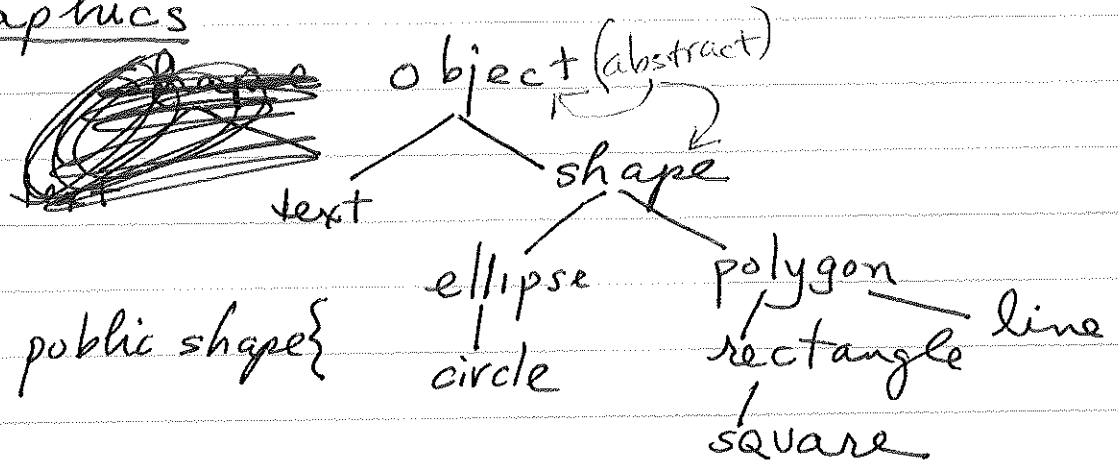 object (abstract)
text
shape
ellipse
polygon
line
public shape{
circle
rectangle
square